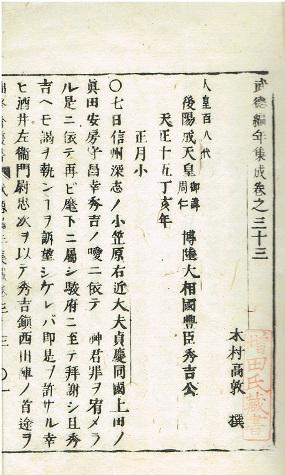 武徳編年集成巻之三十三
木村高敦 撰
人皇百八代
後陽成天皇 御諱周仁 博陸大相國豊臣秀吉公
天正十五丁亥年
正月小
〇七日信州深志ノ小笠原右近大夫貞慶同國上田ノ
眞田安房守昌幸秀吉ノ噯ニ依テ 神君罪ヲ宥メラ
ル是ニ依テ再ビ麾下ニ屬シ駿府ニ至テ拜謝シ且秀
吉ヘモ謁ヲ執ンヿヲ訴望シケレバ即是ヲ許サル幸
ヒ酒井左衞門尉忠次ヲ以テ秀吉鎮西出陣ノ首途ヲ
田氏蔵書